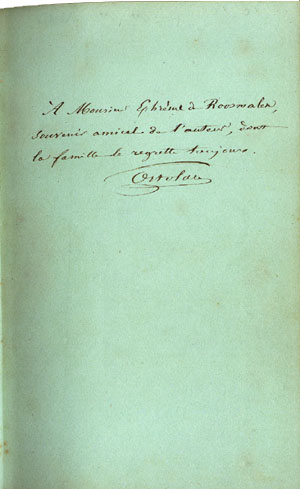 A Monsieur Ephrème de Roosmalen,
souvenir amical de l'auteur, dont
la famille le regrette toujours.
Ortolan